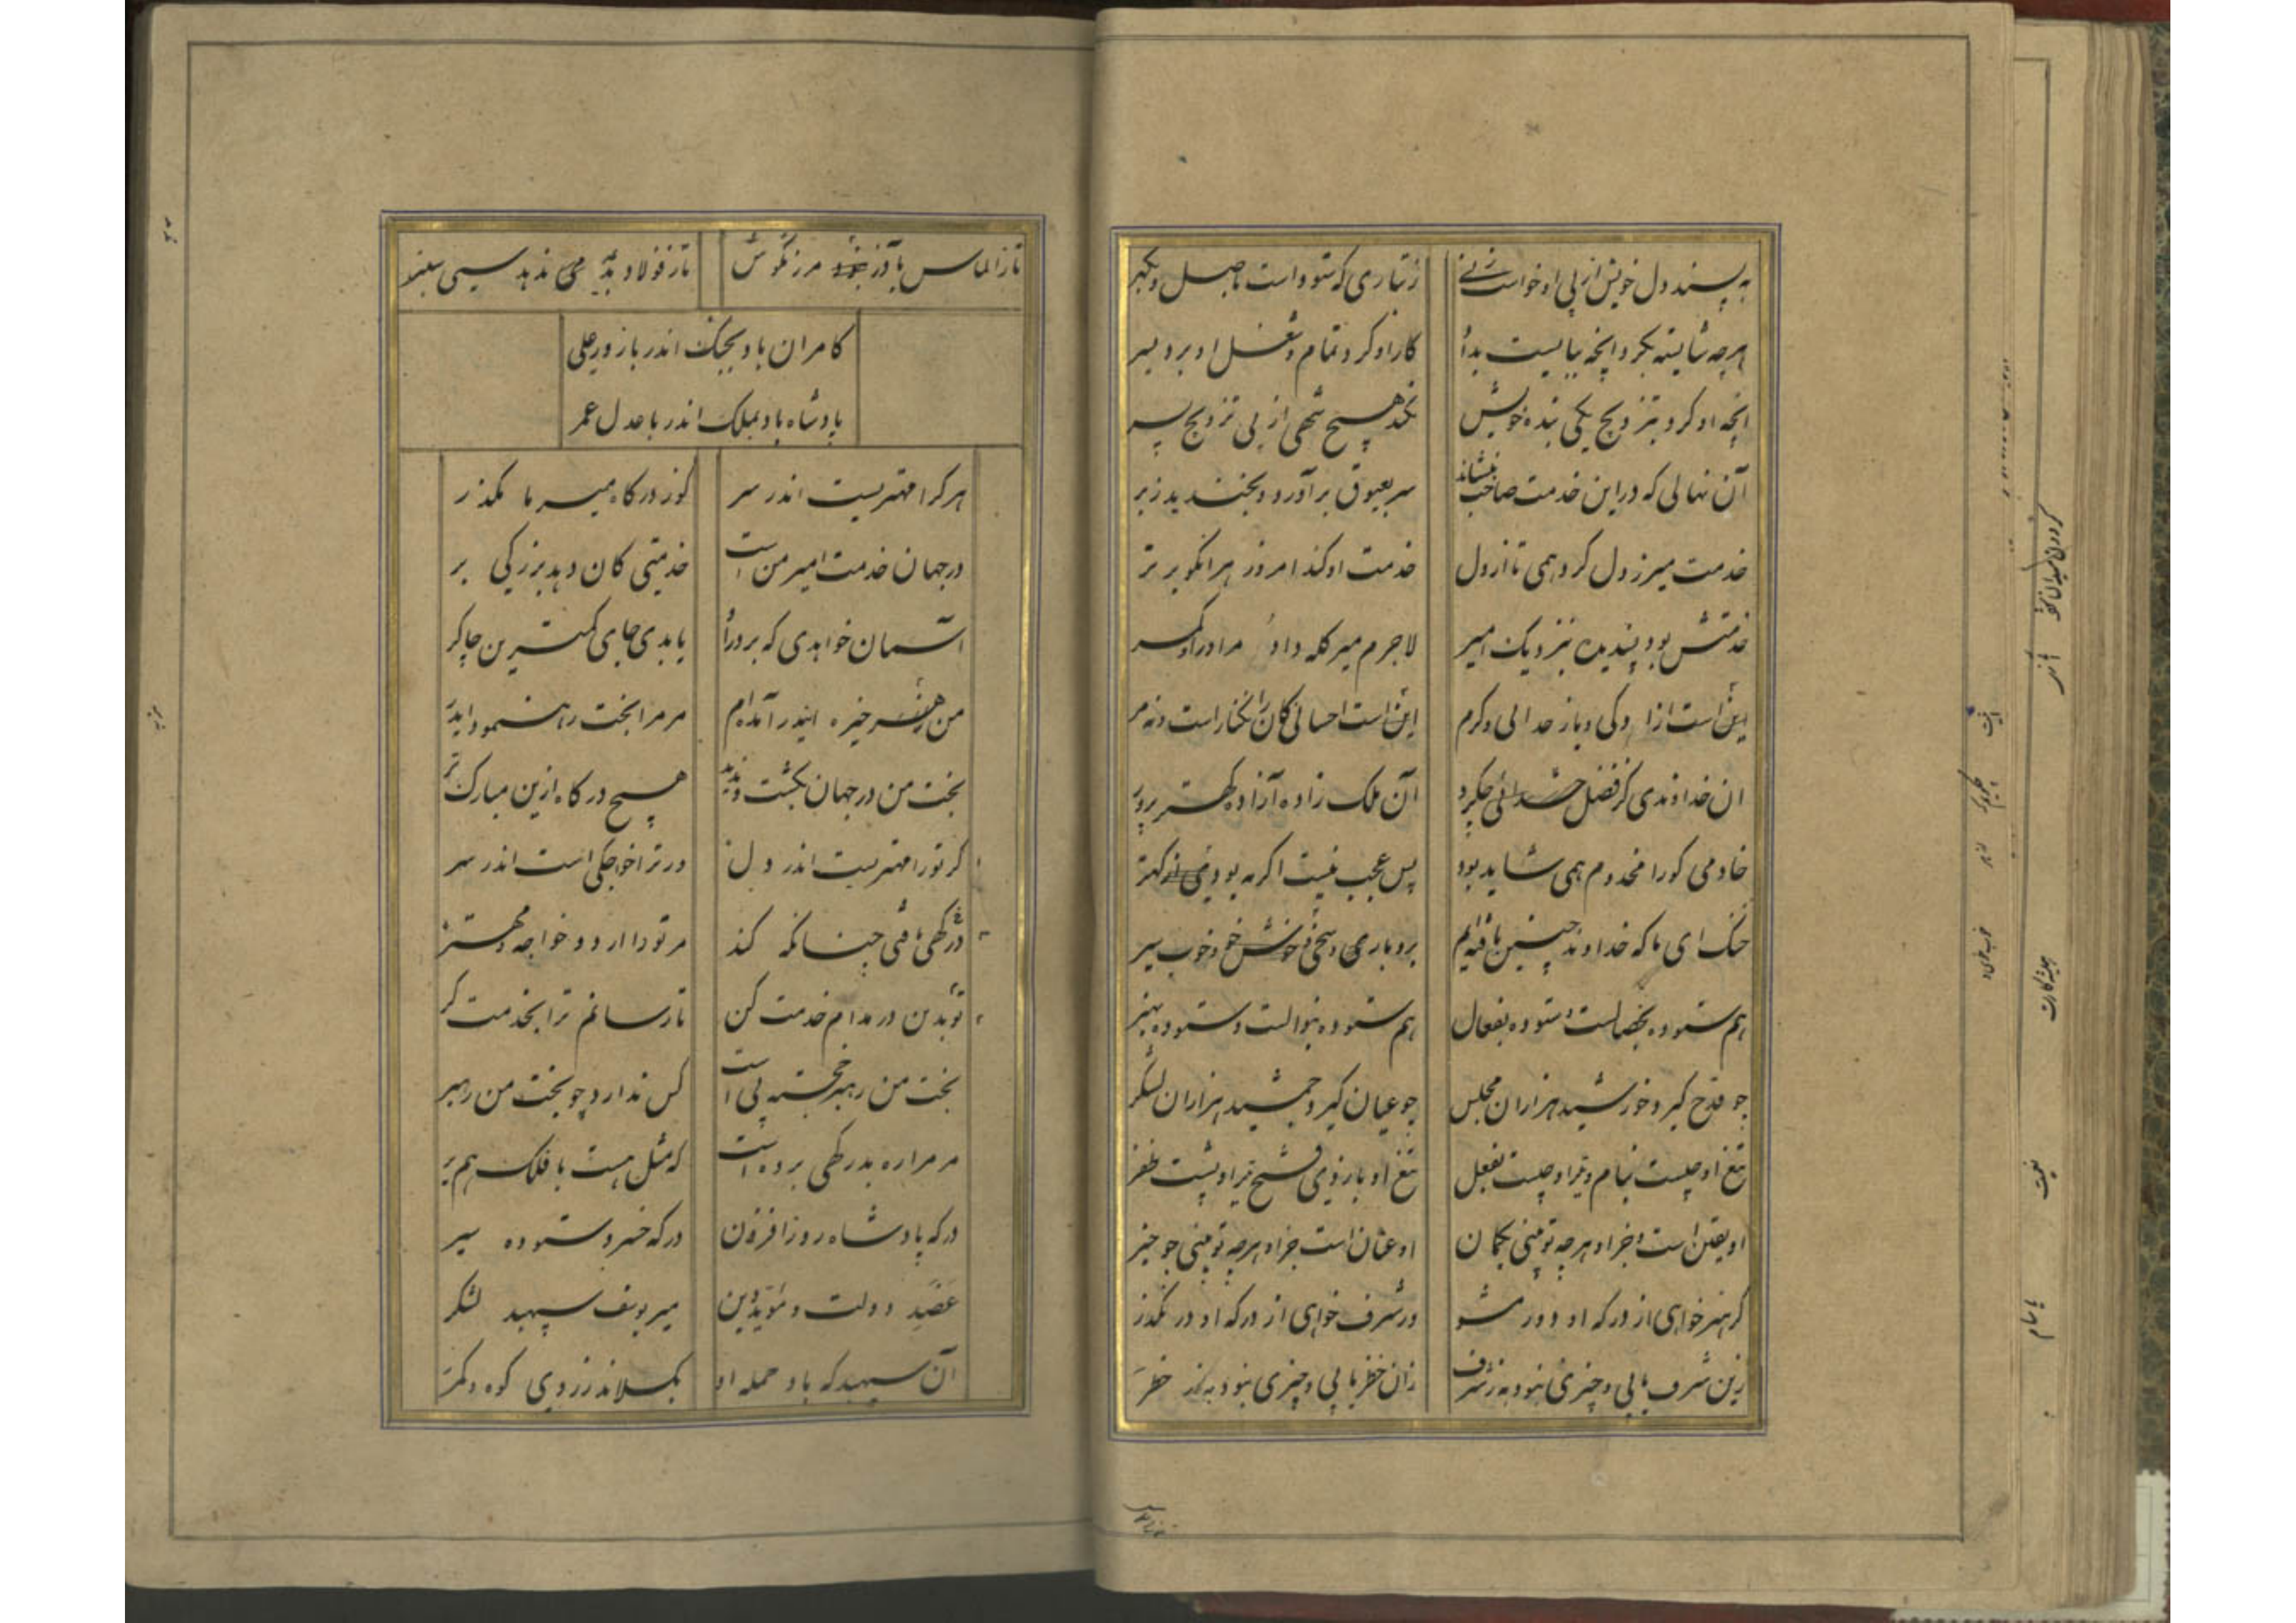 به پسند دل خویش از پی او خواست زنی
ز تباری که ستوده است باصل و بگهر
هرچه شایسته بکرد آنچه ببایست بداد
کار او کرد تمام و شغل او برد بسر
آنچه او کرد بتزویج یکی بنده خویش
نکند هیچ شهی از پی تزویج پسر
آن نهالی که در این خدمت صاحب بنشاند
سر بعیوق برآورد و بخندید زبر
خدمت میر ز دل کرد همی تا از دل
خدمت او کند امروز هر آنکو برتر
خدمتش بود پسندیده بنزدیک امیر
لاجرم میر کله داد مر او را و کمر
اینت آزادگی و بار خدائی و کرم
اینت احسانی کانرا نه کنار است و نه مر
ان خداوندی کز فضل خدائی جکرد
آن ملک زاده آزاده کهتر پرور
خادمی کورا مخدوم همی شاید بود
پس عجب نیست اگر به بود از کهتر
خنک ای ما که خداوند چنین یافته‌ایم
بردباری و سخی خوش خو و خوب سیر
هم ستوده بخصالست و ستوده بفعال
هم ستوده بنوالست و ستوده بهنر
جو قدح گیرد خورشید هزاران مجلس
جو عنان گیرد جمشید هزاران لشکر
تیغ او چیست بنام و تیر او چیست بفعل
تیغ او بازوی فتح تیر او پشت ظفر
او یقین است و جز او هرچه تو بینی بگمان
او عیان است جز او هرچه تو بینی جو خبر
گر هنر خواهی از درگه او دور مشو
ور شرف خواهی از درگه او در نگذر
زین شرف یابی و چیزی نبود به ز شرف
زان خطر یابی و چیزی نبود به ز خطر
تا ز الماس بآذر مرزنگوش
تا ز فولاد بدی می ندهد سیسنبر
کامران باد بجنگ اندر با زور علی
پادشاه باد بملک اندر با عدل عمر
هر کرا مهتریست اندر سر
گو ز درگاه میر ما مگذر
در جهان خدمت امیر من است
خدمتی کان دهد بزرگی بر
آسمان خواهدی که بر در او
یابدی جای کمترین چاکر
من ز هنر خیره ایدر آمده‌ام
مر مرا بخت رهنمود ایدر
بخت من در جهان بگشت و ندید
هیچ درگاه ازین مبارک تر
گر تو را مهتریست اندر دل
ور ترا خواجگی است اندر سر
درگهی یافتی چنانکه کند
مر تو را ارد و خواجه و مهتر
تو بدین در مدام خدمت کن
تا رسانم ترا بخدمت گر
بخت من رهبر خجسته پی است
کس ندارد جو بخت من رهبر
مر مرا ره بدرگهی برده است
که مثل هست با فلک همبر
درگه پادشاه روز افزون
درگه خسرو ستوده سیر
عضد دولت و مؤید دین
میر یوسف سپهبد لشکر
آن سپهبد که باد حمله او
بگسلاند ز روی کوه و کمر